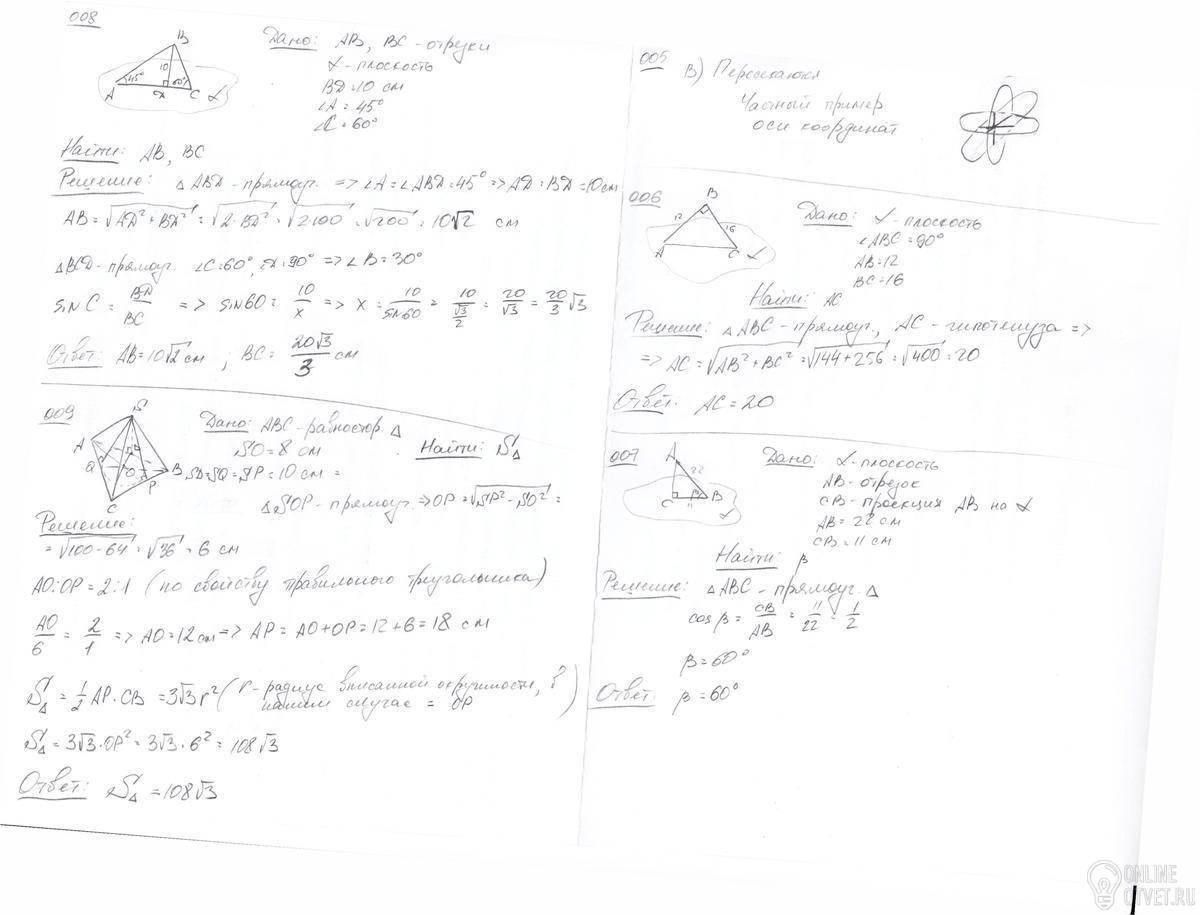 008
B
10
45°
60°
A
Д
C
α
Дано: AB, BC - отрезки
α - плоскость
BД = 10 см
∠A = 45°
∠C = 60°
Найти: AB, BC
Решение: △ ABД - прямоуг. => ∠A = ∠ABД = 45° => AД = BД = 10 см
AB = √AД² + BД² = √2·BД² = √2·100 = √200 = 10√2 см
△BCД - прямоуг. ∠C = 60°, Д = 90° => ∠B = 30°
sin C = BД/BC => sin 60 = 10/x => x = 10/sin 60 = 10/(√3/2) = 20/√3 = 20/3 √3
Ответ: AB = 10√2 см ; BC = 20√3/3 см
009
S
A
Q
O
B
P
C
Дано: ABC - равностор. △
SO = 8 см
Найти: S△
SД = SQ = SP = 10 см =
△SOP - прямоуг. => OP = √SP² - SO² =
Решение:
= √100 - 64 = √36 = 6 см
AO:OP = 2:1 (по свойству правильного треугольника)
AO/6 = 2/1 => AO = 12 см => AP = AO + OP = 12 + 6 = 18 см
S△ = 1/2 AP · CB = 3√3 r² (r - радиус вписанной окружности, в
нашем случае = OP)
S△ = 3√3 · OP² = 3√3 · 6² = 108√3
Ответ: S△ = 108√3
005
В) Пересекаются
Частный пример
оси координат
006
B
12
16
A
C
α
Дано: α - плоскость
∠ABC = 90°
AB = 12
BC = 16
Найти: AC
Решение: △ ABC - прямоуг., AC - гипотенуза =>
=> AC = √AB² + BC² = √144 + 256 = √400 = 20
Ответ. AC = 20
007
A
22
C
β
B
11
α
Дано: α - плоскость
AB - отрезок
CB - проекция AB на α
AB = 22 см
CB = 11 см
Найти β
Решение: △ ABC - прямоуг. △
cos β = CB/AB = 11/22 = 1/2
β = 60°
Ответ. β = 60°
ONLINE
OTVET.RU